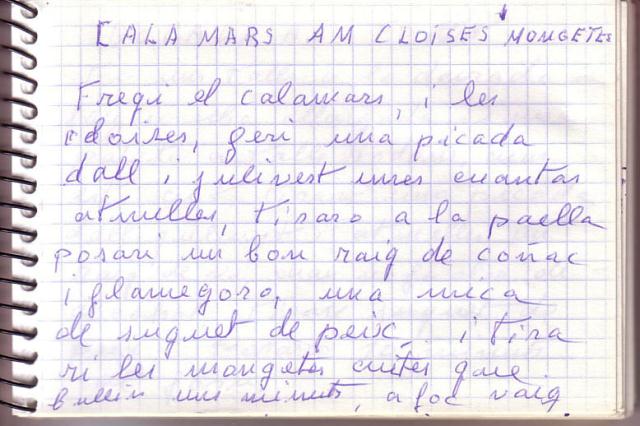 CALAMARS AM CLOISES i MONGETES
Fregi el calamars, i les
cloises, geri una picada
dall i julivest unes cuantas
atmelles, tiraro a la paella
posari un bon raig de coñac
i flamegoro, una mica
de suquet de peix, i tira
ri les mongetes cuites que
bullin uns minuts, a foc vaig